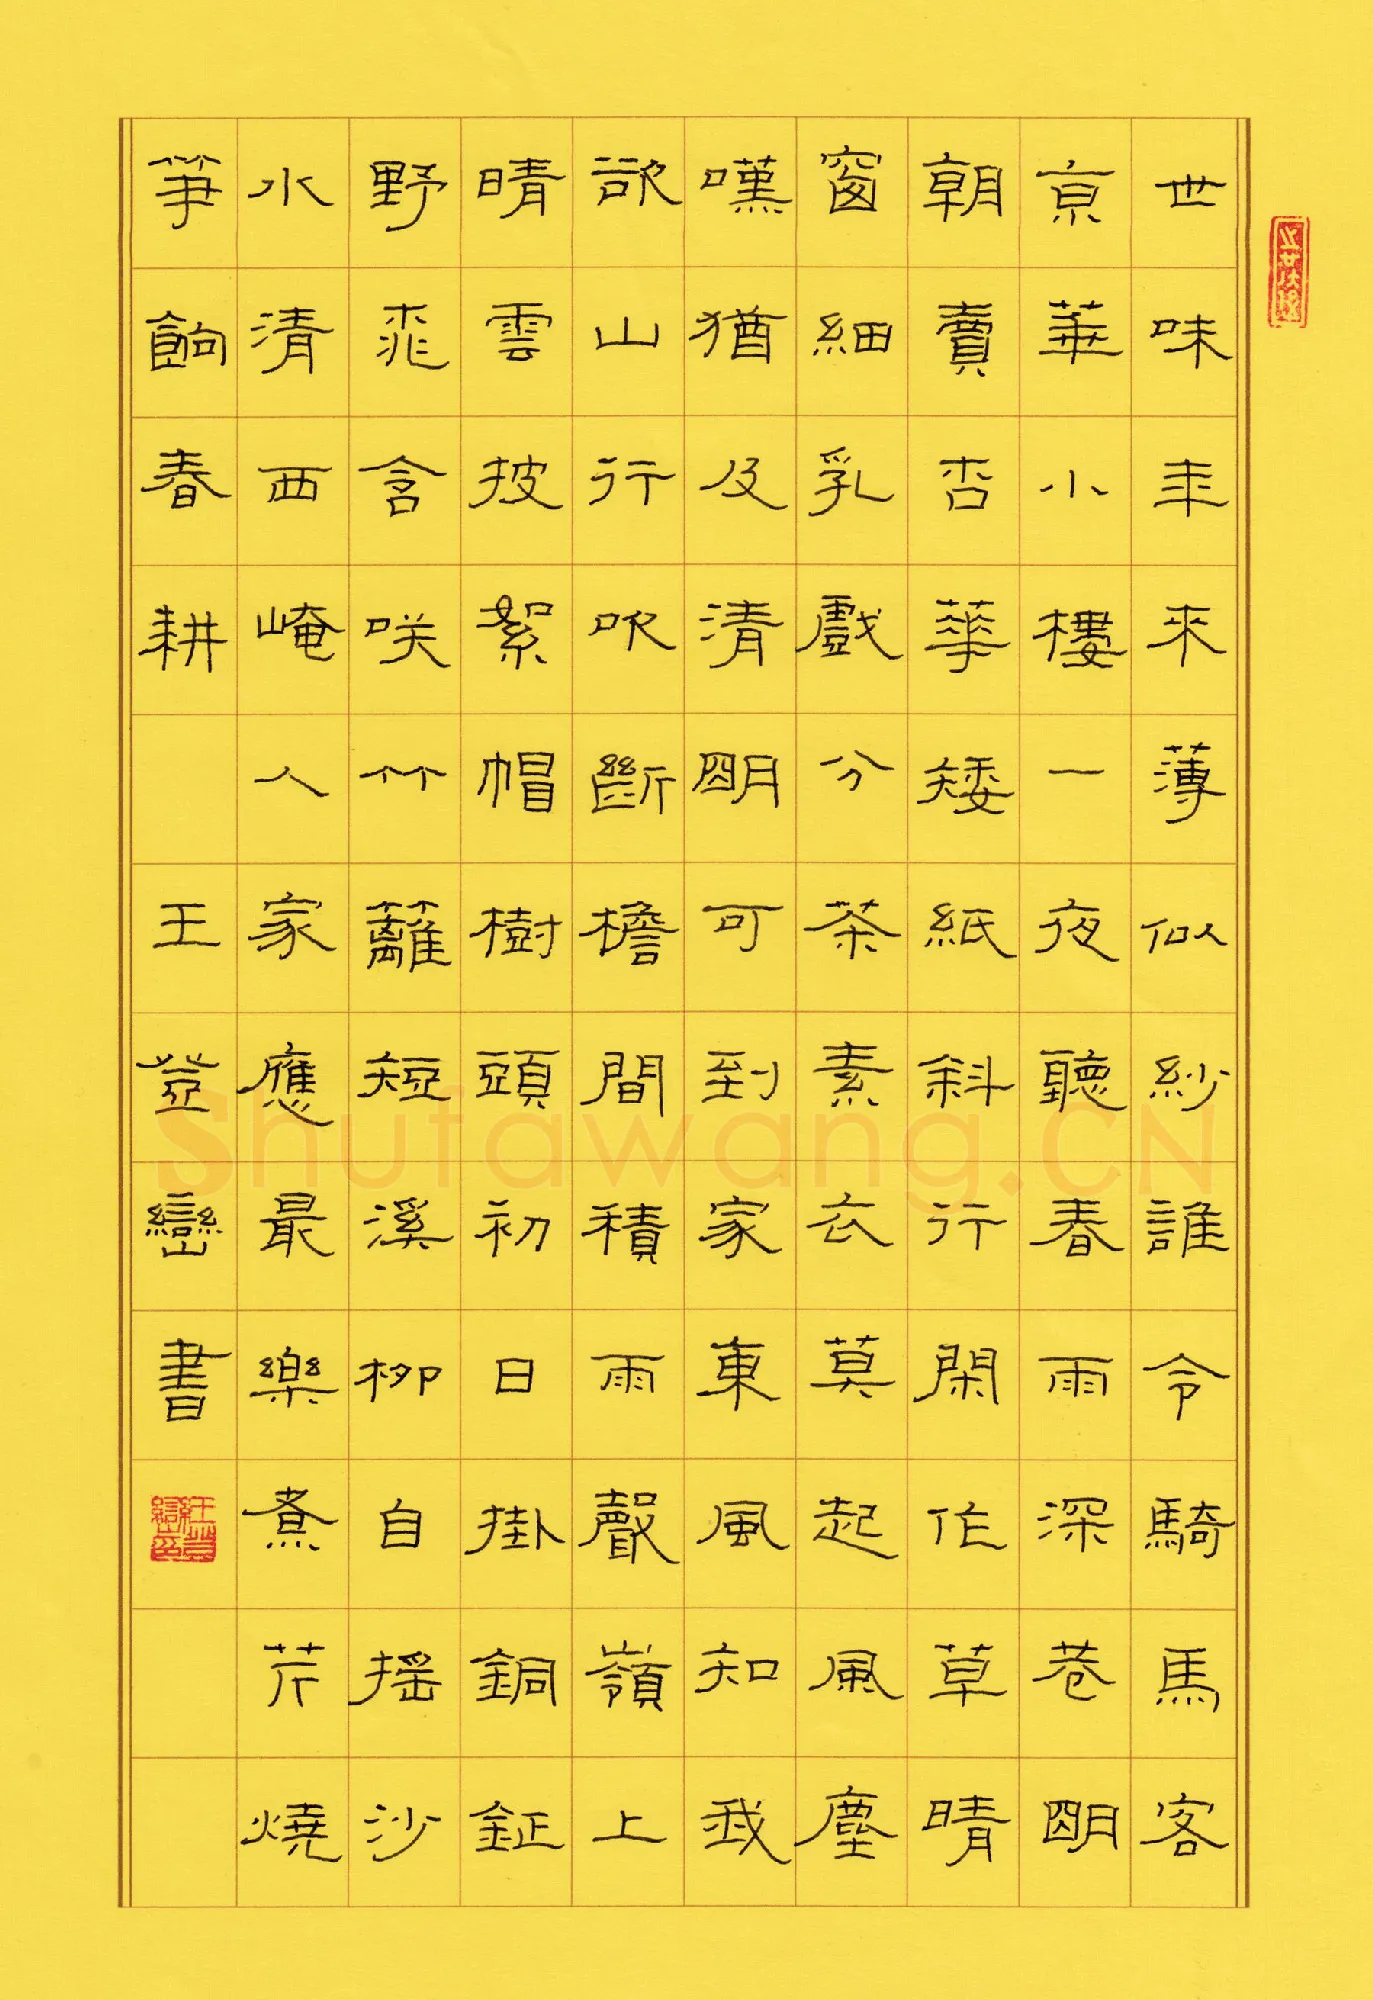 世味年来薄似紗誰令騎馬客
京華小樓一夜聽春雨深巷明
朝賣杏華矮紙斜行閑作草晴
窗細乳戲分茶素衣莫起風塵
嘆猶及清明可到家東風知我
欲山行吹斷檐間積雨聲嶺上
晴雲披絮帽樹頭初日掛銅鉦
野桃含咲竹籬短溪柳自摇沙
水清西崦人家應最樂煮芹燒
笋餉春耕 王登巒書
Shufawang.CN